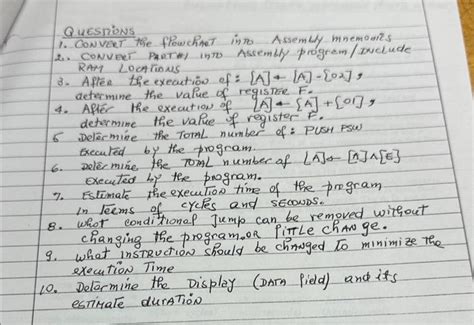 QUESTIONS
1. CONVERT the flowchart into Assembly mnemonics
2. CONVERT PART#1 into Assembly program/Include
RAM LOCATIONS
3. After the execution of : [A] ← [A] - [02] ,
determine the value of register F.
4. After the execution of [A] ← [A] + [01] ,
determine the value of register F.
5 Determine the TOTAL number of : PUSH PSW
Executed by the program.
6. Determine the TOTAL number of [A] ← [A] ∧ [E]
Executed by the program.
7. Estimate the execution time of the program
In Terms of cycles and seconds.
8. what conditional Jump can be removed without
changing the program. OR little change.
9. what INSTRUCTION should be changed to minimize the
execution Time
10. Determine the Display (DATA field) and its
estimate duration